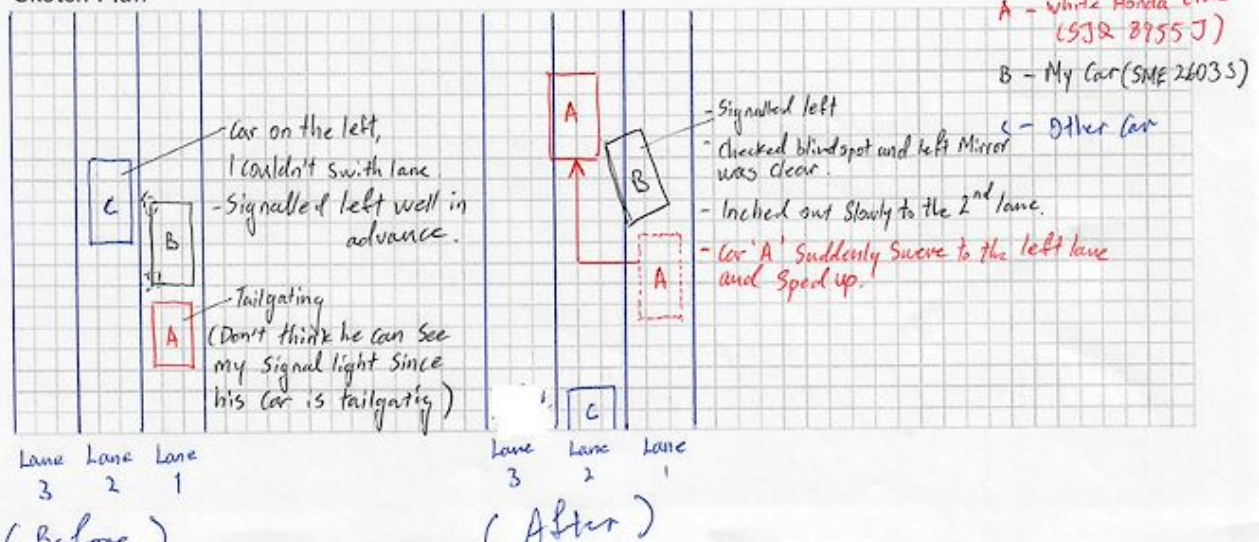 A - White Honda
(SJQ 8955 J)
B - My Car (SME 2603 S)
C - Other Car
Car on the left,
I couldn't swith lane.
- Signalled left well in
advance.
C
B
A
- Tailgating
(Don't think he can see
my signal light since
his car is tailgatig)
Lane Lane Lane
3 2 1
(Before)
A
B
A
C
- Signalled left
- Checked blindspot and left Mirror
was clear.
- Inched out slowly to the 2nd lane.
- Car 'A' Suddenly Swere to the left lane
and Sped up.
Lane Lane Lane
3 2 1
(After)